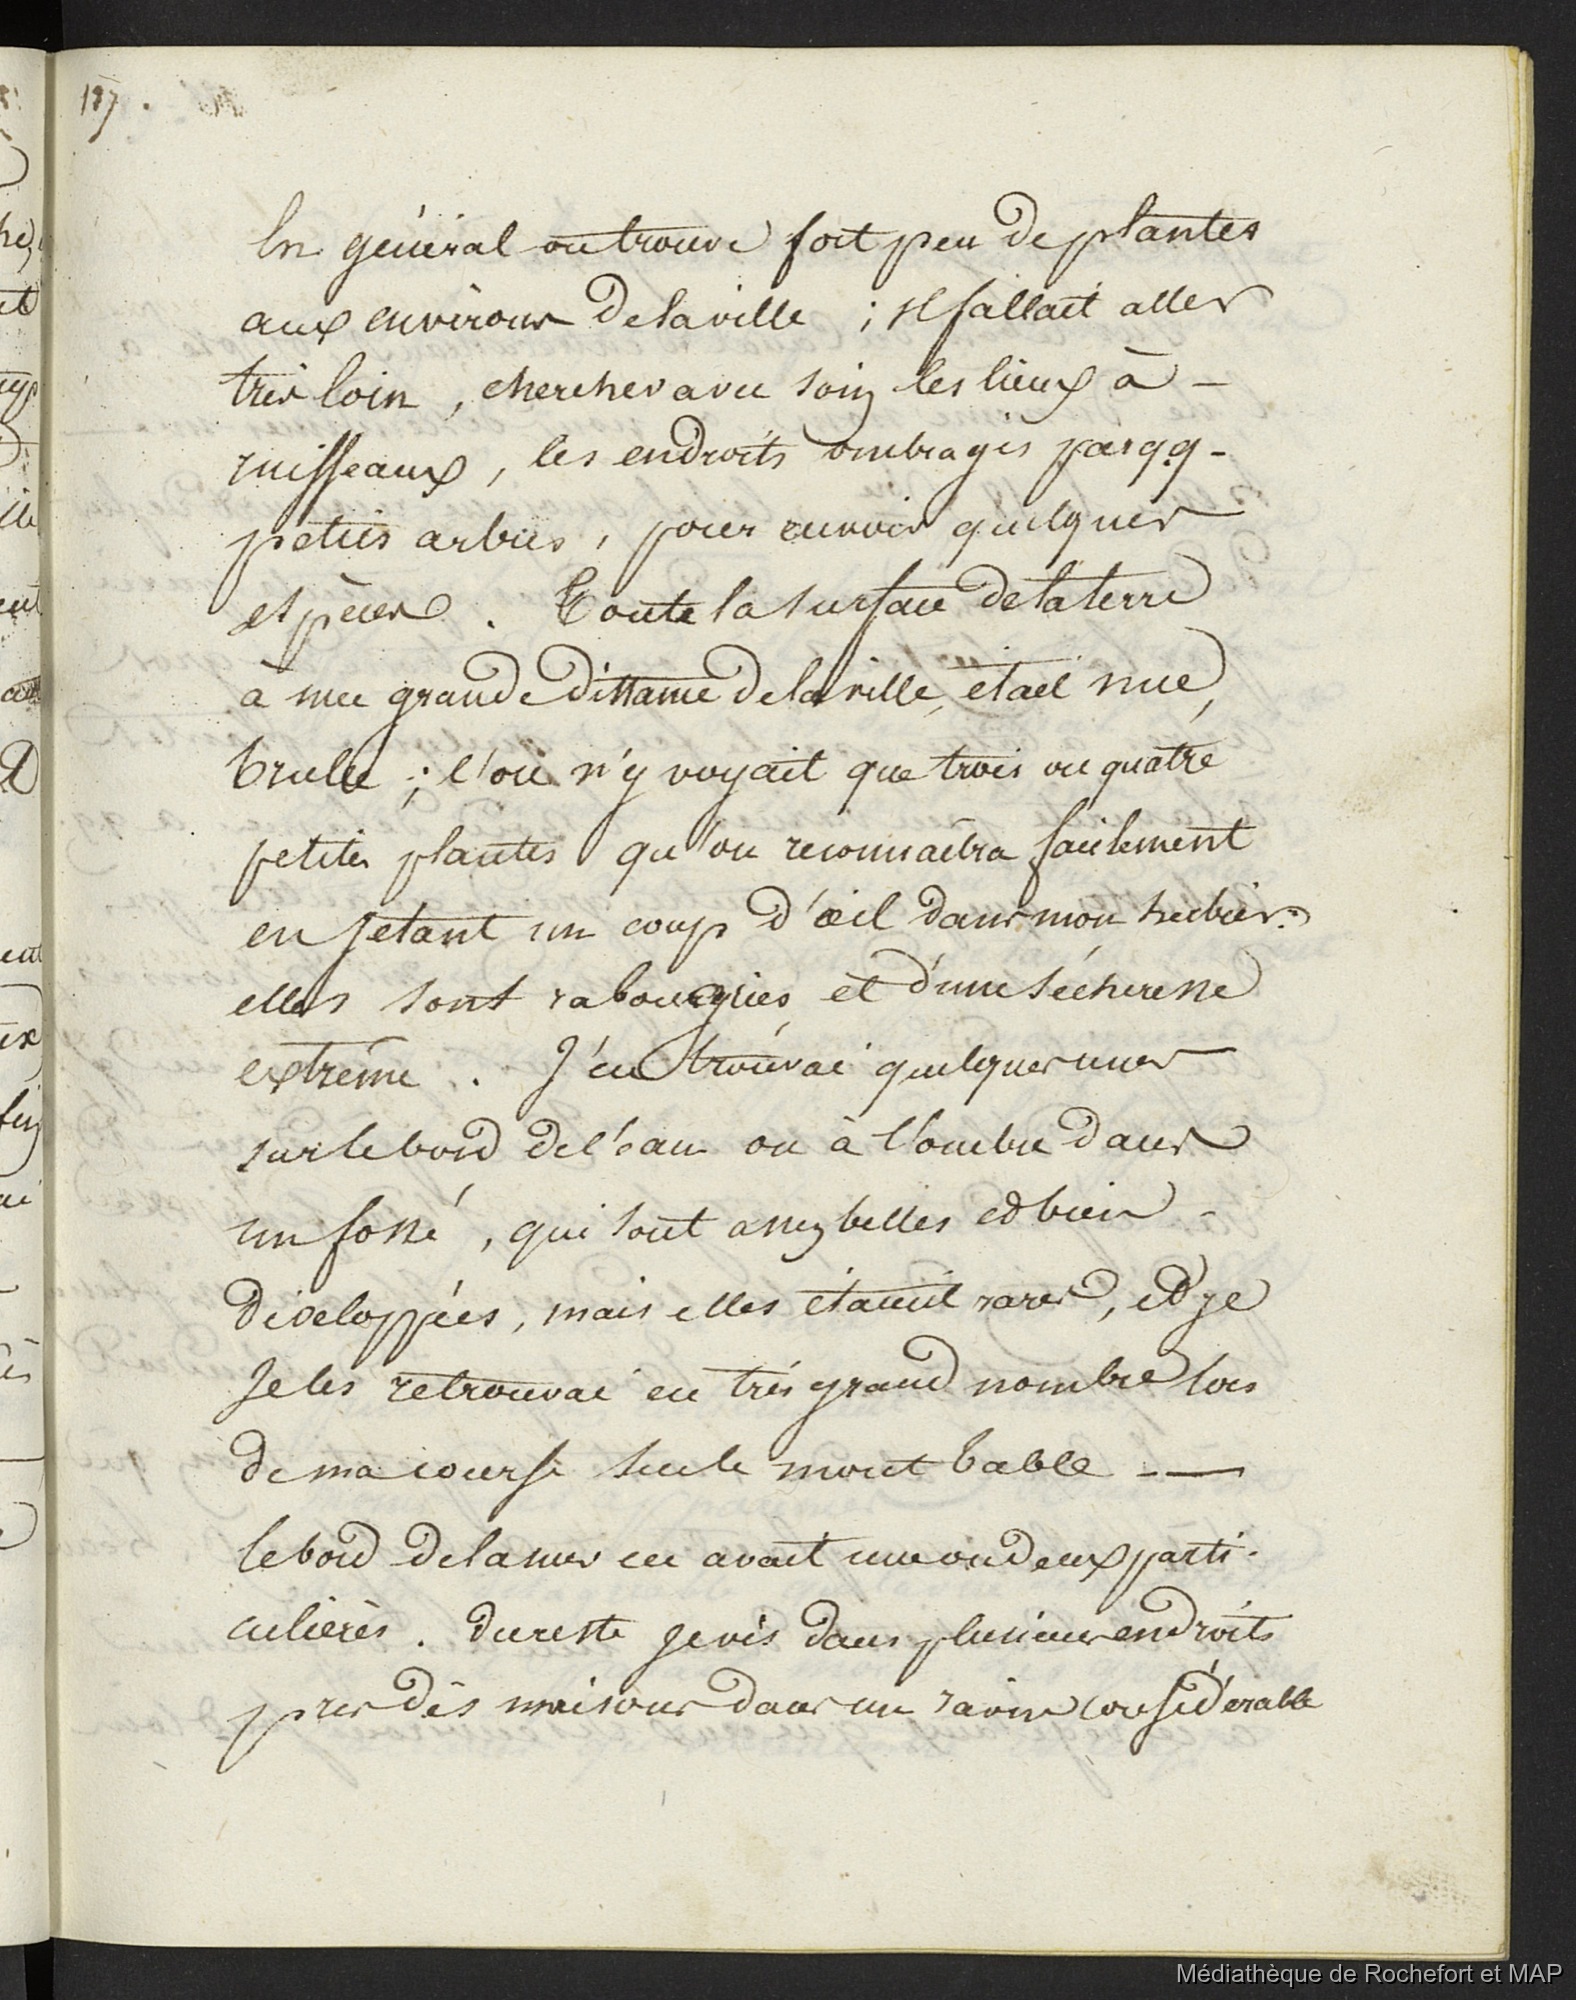 187.
En général on trouve fort peu de plantes
aux environs de la ville ; il fallait aller
très loin, chercher avec soin les lieux à -
ruisseaux, les endroits ombragés par qq -
petits arbres, pour revoir quelques
espèces. Toute la surface de la terre
à une grande distance de la ville, était nue,
brulée ; l'on n'y voyait que trois ou quatre
petites plantes qu'on reconnaitra facilement
en jetant un coup d'œil dans mon herbier.
elles sont rabougries et d'une sécheresse
extrême. J'en trouvai quelques unes
sur le bord de l'eau ou à l'ombre dans
un fossé, qui sont assez belles et bien -
développées, mais elles étaient rares, et je
je les retrouvai en très grand nombre lors
de ma course sur le mont table - —
le bord de la mer en avait une ou deux parti-
culières. du reste je vis dans plusieurs endroits
près des maisons dans un ravin considérable
Médiathèque de Rochefort et MAP